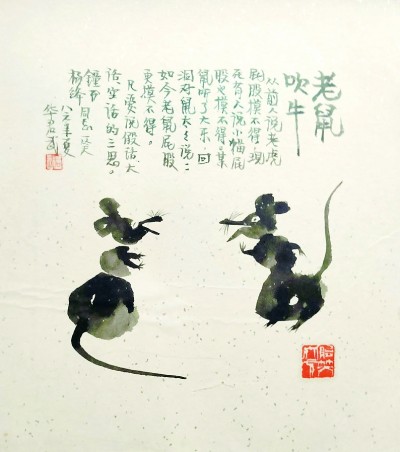 老鼠
吹牛
从前人说老虎
屁股摸不得,现
在有人说小猫屁
股也摸不得。某
鼠听了大乐,回
洞对鼠太太说:
如今老鼠屁股
更摸不得。
凡爱说假话、大
话、空话的三思。
鍾书
杨绛 同志一笑
年夏
华君武